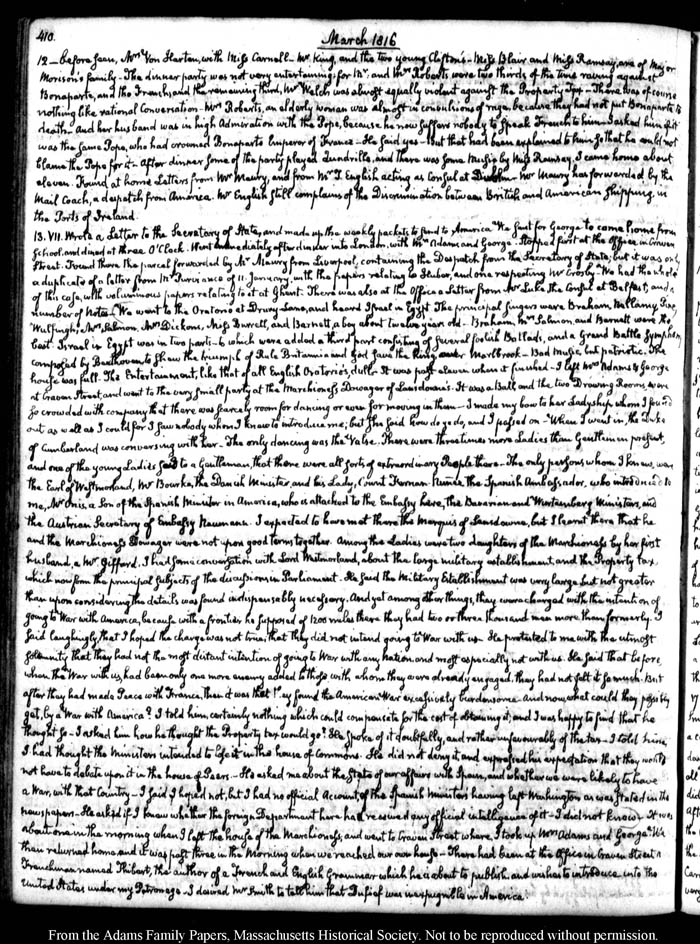 410.
March 1816
12 — before seen, Mrs. Von Harten, with Miss Carnell — Mr. King, and the two young Cliftons — Miss Blair and Miss Ramsay, are of Major
Morison's family — The dinner party was not very entertaining; for Mr. and Mrs. Roberts were two thirds of the time raving against
Bonaparte, and the French; and the remaining third, Mr. Welch was almost equally violent against the Property Tax — There was of course
nothing like rational Conversation — Mrs. Roberts, an elderly woman was almost in convulsions of rage, because they had not put Bonaparte to
death. And her husband was in high Admiration with the Pope, because he now suffers nobody to speak French to him — I asked him if it
was the same Pope, who had crowned Bonaparte Emperor of France — He said yes — but that had been explained to him so that he could not
blame the Pope for it — After dinner some of the party played Quadrille, and there was some Music by Miss Ramsay. I came home about
eleven. Found at home Letters from Mr. Maury, and from Mr. T. English acting as Consul at Dublin — Mr. Maury has forwarded by the
Mail Coach, a despatch from America. Mr. English still complains of the Discrimination between British and American Shipping, in
the Ports of Ireland.
13. VII. Wrote a Letter to the Secretary of State, and made up the weekly packets to send to America. We sent for George to come home from
School, and dined at three O'Clock. Went immediately after dinner into London, with Mrs. Adams and George — stopped first at the Office in Craven
Street. Found there the parcel forwarded by Mr. Maury from Liverpool, containing the Despatch from the Secretary of State; but it was only
a duplicate of a letter from of 11. January, with the papers relating to and one respecting Mr. Crosby — We had the whole
of this case, with voluminous papers relating to it at Ghent — There was also at the Office a Letter from Mr. Luke the Consul at Belfast; and a
number of Notes — We went to the Oratorio at Drury-Lane, and heard Israel in Egypt. The principal singers were Braham, Bellamy,
Mrs. Salmon, Mrs. Dickons, Miss Burrell, and Barnett, a boy about twelve years old — Braham, Mrs. Salmon and Barnett were the
best. Israel in Egypt was in two parts — to which were added a third part consisting of several foolish Ballads, and a Grand Battle Symphony,
composed by Beethoven, to shew the triumph of Rule Britannia and God save the King, over Marlbrook — Bad Music, but patriotic. The
house was full. The Entertainment, like that of all English Oratorio's, dull. It was past eleven when it finished — I left Mrs. Adams & George
at Craven Street, and went to the very small party at the Marchioness Dowager of Lansdowne's. It was a Ball, and the two Drawing Rooms, were
so crowded with company that there was scarcely room for dancing or even for moving in them — I made my bow to her Ladyship whom I found
out as well as I could for I saw nobody whom I knew to introduce me; but she said how do ye do, and I passed on — When I went in, the Duke
of Cumberland was conversing with her — The only dancing was the Valse. There were three times more Ladies than Gentlemen present,
and one of the young Ladies said to a Gentleman, that there were all sorts of extraordinary People there — The only persons whom I knew, were
the Earl of Westmorland, Mr. Bourke, the Danish Minister, and his Lady, Count Fernan-Nunez the Spanish Ambassador, who introduced to
me, Mr. Onis, a Son of the Spanish Minister in America, who is attached to the Embassy here, the Bavarian and Wurtemberg Ministers, and
the Austrian Secretary of Embassy Neumann. I expected to have met there the Marquis of Lansdowne, but I learnt there that he
and the Marchioness Dowager were not upon good terms together. Among the Ladies were two daughters of the Marchioness by her first
husband, a Mr. Gifford. I had some conversation with Lord Westmorland, about the large military establishment, and the Property tax,
which now form the principal subjects of the discussions in Parliament. He said the Military Establishment was very large but not greater
than upon considering the details was found indispensably necessary. And yet among other things, they were charged with the intention of
going to War with America, because with a frontier he supposed of 1200 miles there they had two or three thousand men more than formerly. I
said laughingly that I hoped the charge was not true, that they did not intend going to War with us. He protested to me with the utmost
solemnity that they had not the most distant intention of going to War with any nation and most especially not with us. He said that before,
when the War with us had been only one more enemy added to those with whom they were already engaged, they had not felt it so much. But
after they had made Peace with France, then it was that they found the American War excessively burdensome. And now what could they possibly
get, by a War with America? I told him, certainly nothing which could compensate for the cost of obtaining it; and I was happy to find that he
thought so — I asked him how he thought the Property tax would go? He spoke of it doubtfully, and rather unfavourably of the tax — I told him,
I had thought the Ministers intended to lose it in the house of Commons. He did not deny it, and expressed his expectation that they would
not have to debate upon it in the house of Peers — He asked me about the State of our affairs with Spain, and whether we were likely to have
a War, with that Country — I said I hoped not, but I had no official Account, of the Spanish Ministers having left Washington as was stated in the
newspapers — He asked if I knew whether the foreign Department here had received any official intelligence of it — I did not know — It was
about one in the morning when I left the house of the Marchioness, and went to Craven Street where, I took up Mrs. Adams and George. We
then returned home and it was past three in the Morning when we reached our own house — There had been at the Office in Craven Street a
Frenchman named Thibart, the author of a French and English Grammar which he is about to publish, and wishes to introduce into the
United States under my Patronage — I desired Mr. Smith to tell him that Dufief was inexpugnible in America.
From the Adams Family Papers, Massachusetts Historical Society. Not to be reproduced without permission.